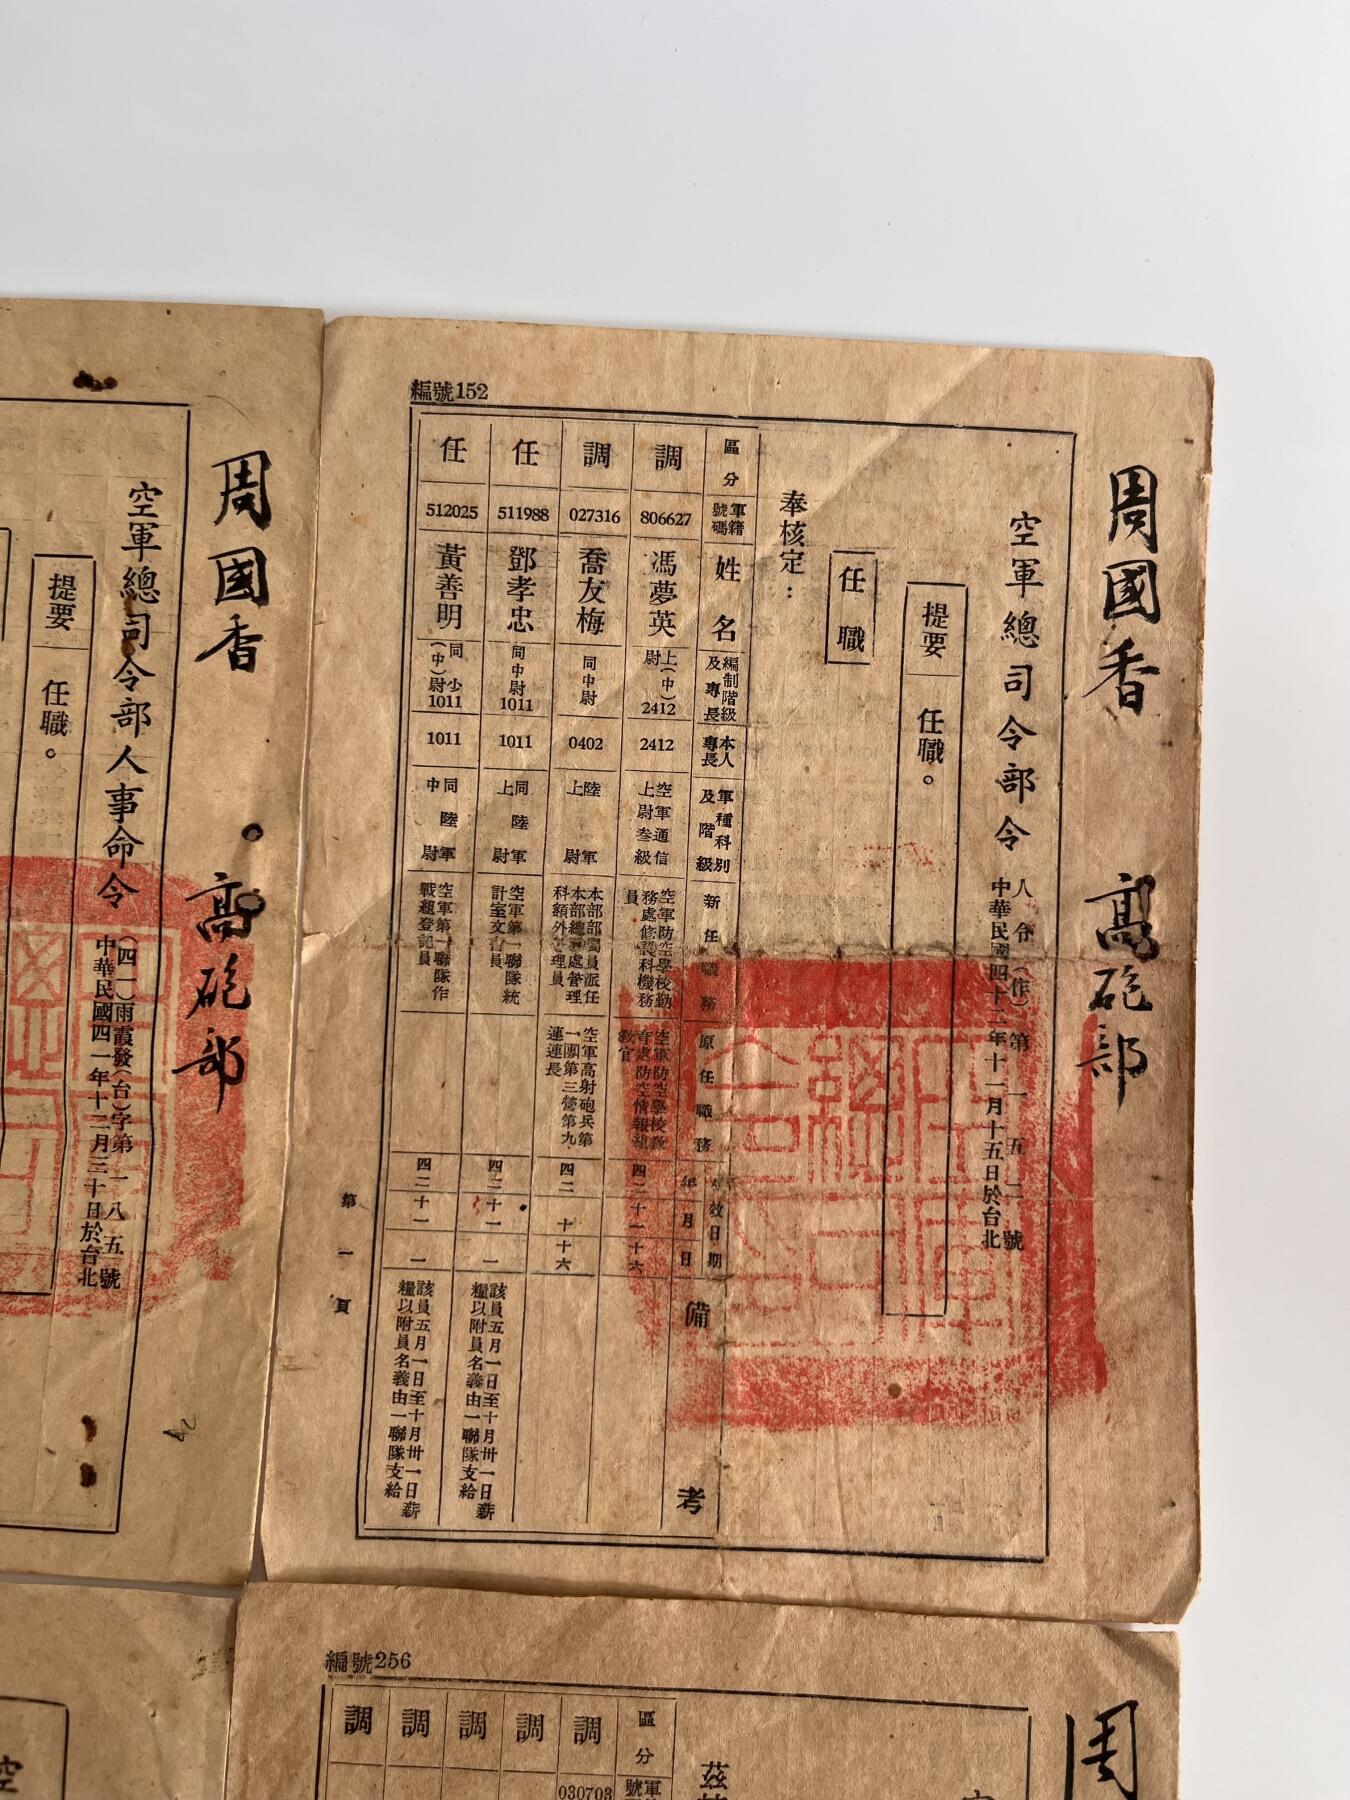 周國香 高砲部
空軍總司令部令
人令(作)第一五二號
中華民國四十二年十一月十五日於台北
提要 任職。
任職
奉核定:
編號152
區分 軍籍號碼 姓名 編制階級及專長 本人專長 軍種科別及階級 新任職務 原任職務 生效日期 年月日 備考
調 806627 馮夢英 上(中)尉2412 2412 空軍通信上尉叁級 空軍防空學校勤務處修護科機務員 空軍防空學校教育處防空情報組教官 四二 十一 十六
調 027316 喬友梅 同中尉 0402 陸軍上尉 本部部屬員派任本部總務處管理科額外管理員 空軍高射砲兵第一團第三營第九連連長 四二 十 十六
任 511988 鄧孝忠 同中尉1011 1011 同陸軍上尉 空軍第一聯隊統計室文書員 四二 十一 一 該員五月一日至十月卅一日薪糧以附員名義由一聯隊支給
任 512025 黃善明 同少(中)尉1011 1011 同陸軍中尉 空軍第一聯隊作戰組登記員 四二 十一 一 該員五月一日至十月卅一日薪糧以附員名義由一聯隊支給
第一頁
周國香 高砲部
空軍總司令部人事命令
(四一)雨霞發(台)字第一八五號
中華民國四一年十二月三十日於台北
提要 任職。
周
編號256
茲
區分 軍號
調 030703
調
調
調
調
空